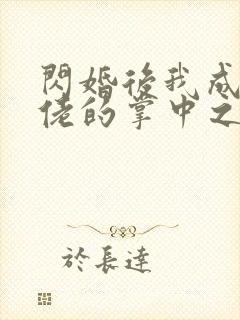 閃婚後我成
佬的掌中之
於長達